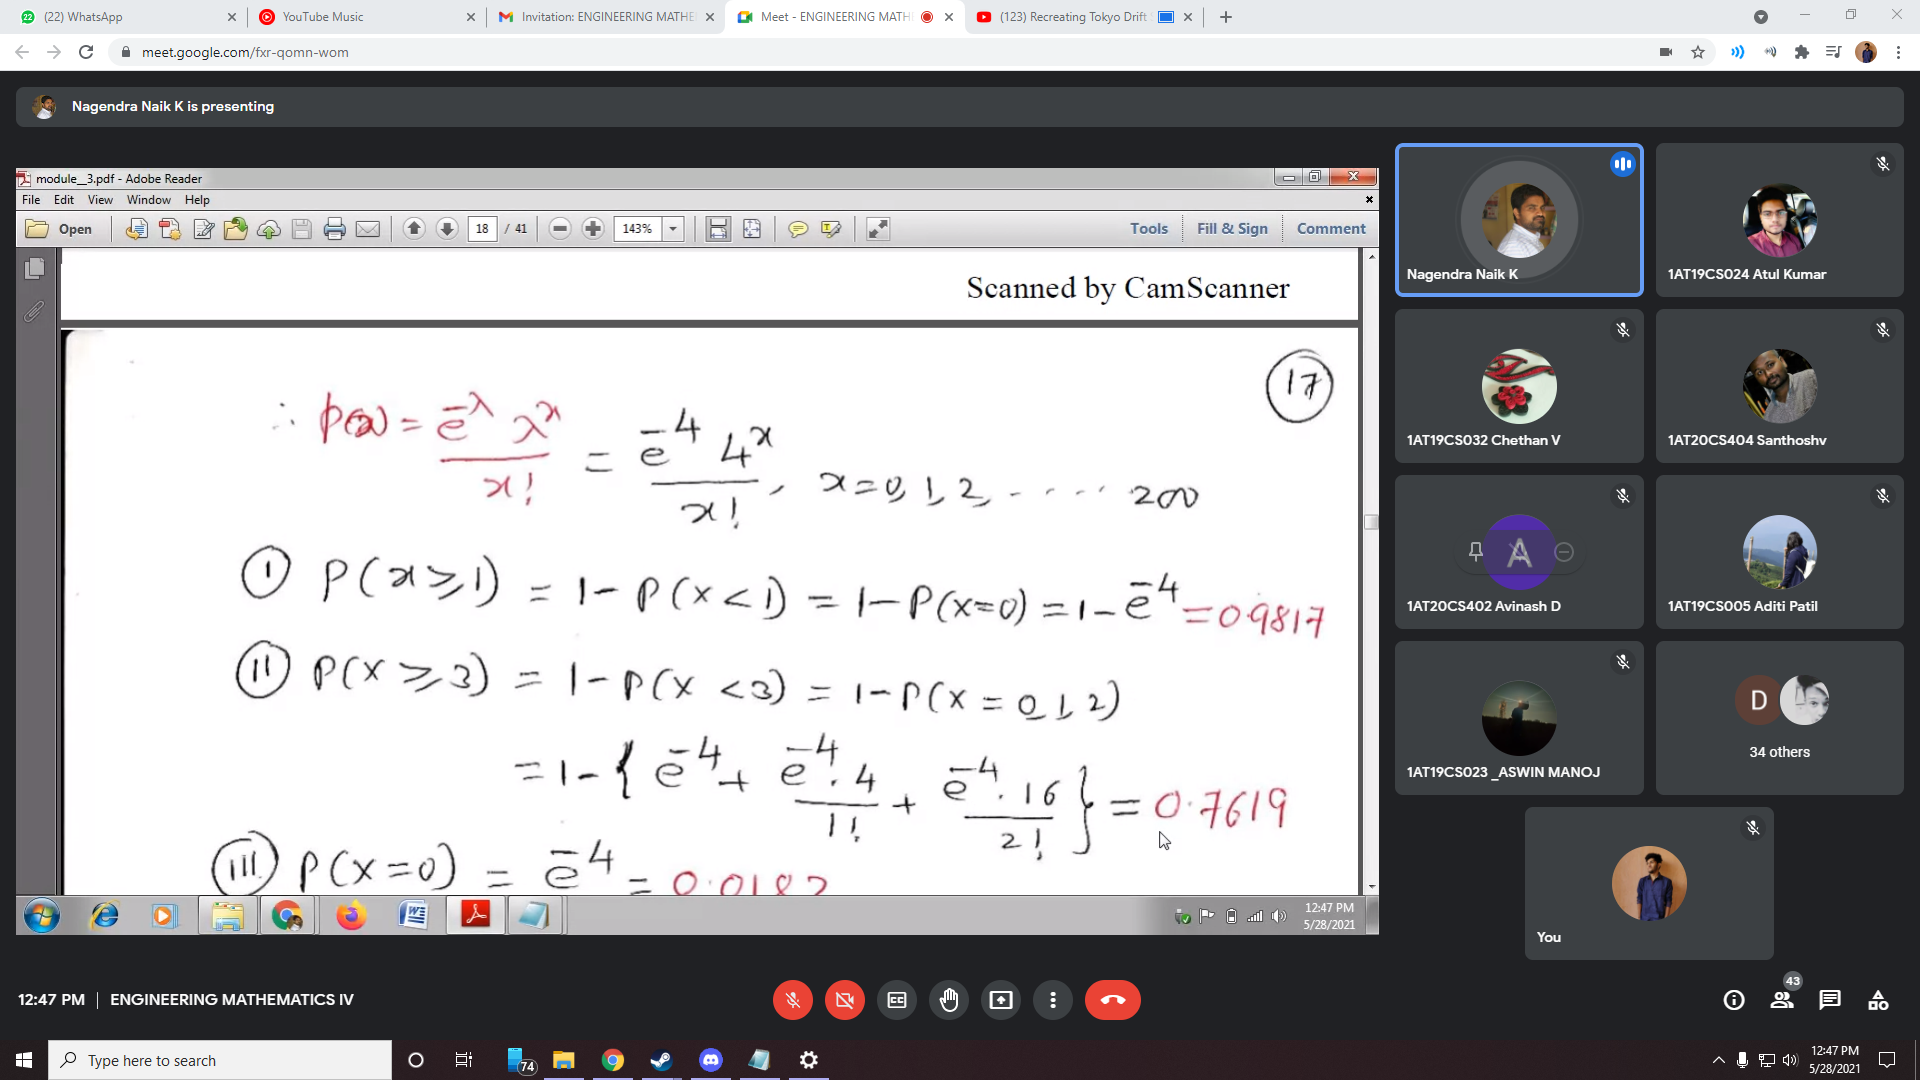 (22) WhatsApp
YouTube Music
Invitation: ENGINEERING MATHE
Meet - ENGINEERING MATH
(123) Recreating Tokyo Drift
meet.google.com/fxr-qomn-wom
Nagendra Naik K is presenting
module__3.pdf - Adobe Reader
File Edit View Window Help
Open 18 / 41 143% Tools Fill & Sign Comment
Scanned by CamScanner
17
∴ p(x) = e^-λ λ^x / x! = e^-4 4^x / x! , x = 0, 1, 2, ..... 200
(I) P(x ≥ 1) = 1 - P(x < 1) = 1 - P(x=0) = 1 - e^-4 = 0.9817
(II) P(x ≥ 3) = 1 - P(x < 3) = 1 - P(x = 0, 1, 2)
= 1 - { e^-4 + e^-4 . 4 / 1! + e^-4 . 16 / 2! } = 0.7619
(III) P(x = 0) = e^-4 = 0.0183
12:47 PM
5/28/2021
Nagendra Naik K
1AT19CS024 Atul Kumar
1AT19CS032 Chethan V
1AT20CS404 Santhoshv
A
1AT20CS402 Avinash D
1AT19CS005 Aditi Patil
1AT19CS023 _ASWIN MANOJ
D
34 others
You
12:47 PM | ENGINEERING MATHEMATICS IV
43
Type here to search
74
12:47 PM
5/28/2021